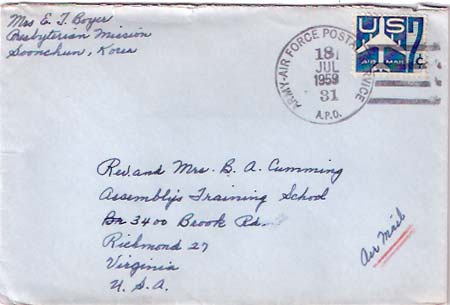 Mrs E. T. Boyer
Presbyterian Mission
Soonchun, Korea
ARMY-AIR FORCE POSTAL SERVICE
18
JUL
1959
31
A.P.O.
US
7¢
AIR MAIL
Rev. and Mrs. B. A. Cumming
Assembly's Training School
3400 Brook Rd.
Richmond 27
Virginia
U. S. A.
Air Mail